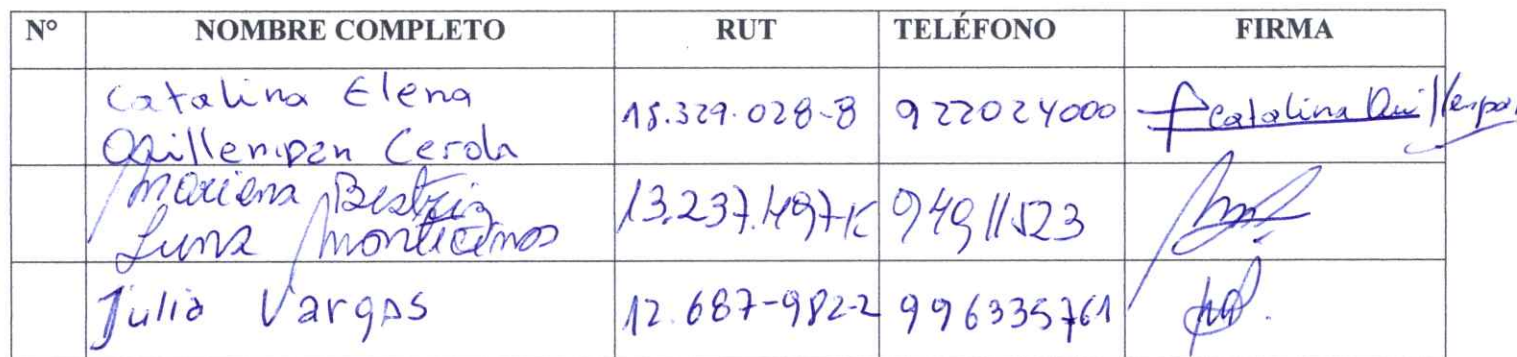 N° NOMBRE COMPLETO RUT TELÉFONO FIRMA
Catalina Elena
Quillempan Cerda 15.329.028-8 922024000 Catalina Quillempan
Mariana Beatriz
Luna Monticinos 13.237.497-K 94911523
Julia Vargas 12.687-982-2 996335761